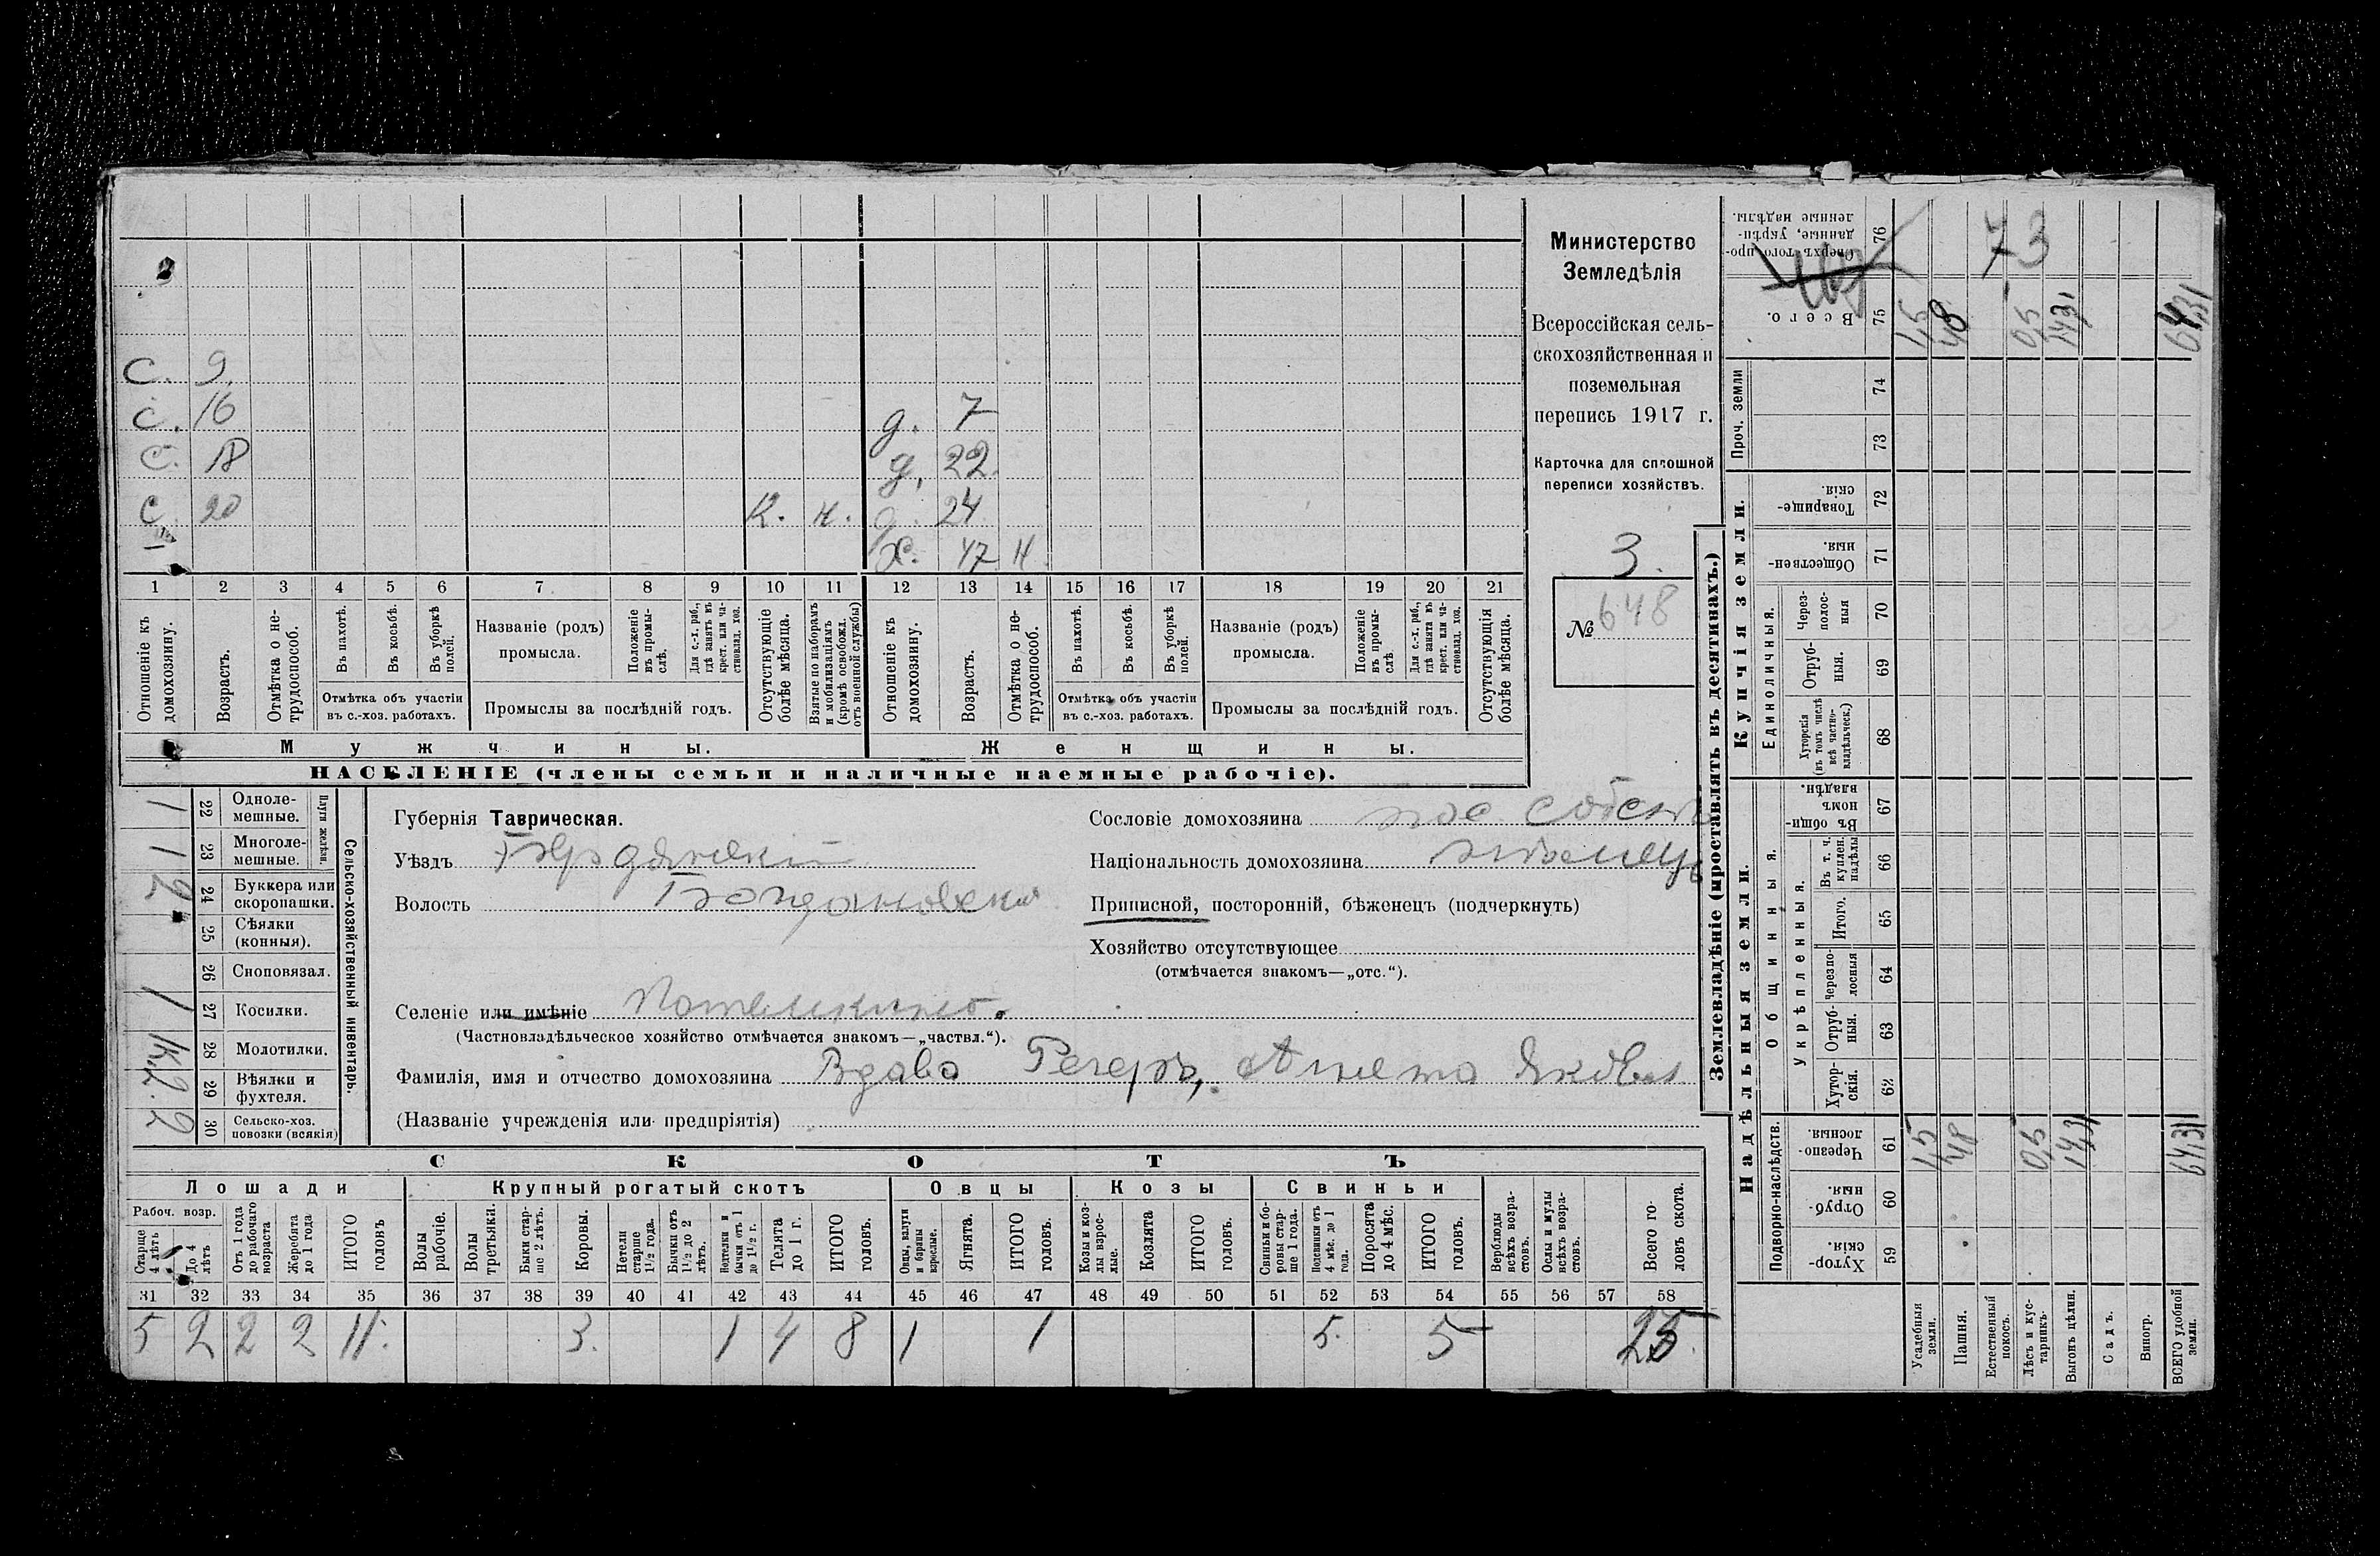 С. 9.
С. 16
д. 7
С. 18
д. 22.
С 20
К. н.
д. 24
х. 47 н
1 2 3 4 5 6 7 8 9 10 11 12 13 14 15 16 17 18 19 20 21
Отношеніе къ домохозяину.
Возрастъ.
Отмѣтка о нетрудоспособ.
Въ пахотѣ.
Въ косьбѣ.
Въ уборкѣ полей.
Отмѣтка объ участіи въ с.-хоз. работахъ.
Названіе (родъ) промысла.
Положеніе въ промыслѣ.
Для с.-х. раб., гдѣ занятъ въ крест. или частновлад. хоз.
Промыслы за послѣдній годъ.
Отсутствующіе болѣе мѣсяца.
Взятые по наборамъ и мобилизаціямъ (кромѣ освобожд. отъ военной службы)
Отношеніе къ домохозяину.
Возрастъ.
Отмѣтка о нетрудоспособ.
Въ пахотѣ.
Въ косьбѣ.
Въ уборкѣ полей.
Отмѣтка объ участіи въ с.-хоз. работахъ.
Названіе (родъ) промысла.
Положеніе въ промыслѣ
Для с.-х. раб., гдѣ занята въ крест. или частновлад. хоз.
Промыслы за послѣдній годъ.
Отсутствующія болѣе мѣсяца.
Мужчины.
Женщины.
НАСЕЛЕНІЕ (члены семьи и наличные наемные рабочіе).
Министерство
Земледѣлія
Всероссійская сель-
скохозяйственная и
поземельная
перепись 1917 г.
Карточка для сплошной
переписи хозяйствъ.
3.
№ 648
Сельско-хозяйственный инвентарь.
Плуги желѣзн.
1 22 Одноле-мешные.
1 23 Многоле-мешные.
2 24 Буккера или скоропашки.
25 Сѣялки (конныя).
26 Сноповязал.
1 27 Косилки.
28 Молотилки.
2. 29 Вѣялки и фухтеля.
2 30 Сельско-хоз. повозки (всякія)
Губернія Таврическая.
Уѣздъ Бердянскій
Волость Богдановская
Селеніе или имѣніе
(Частновладѣльческое хозяйство отмѣчается знакомъ—„частвл.“).
Фамилія, имя и отчество домохозяина Вдова Регеръ, Анета Яковл
(Названіе учрежденія или предпріятія)
Сословіе домохозяина пос собств
Національность домохозяина нѣмецъ
Приписной, посторонній, бѣженецъ (подчеркнуть)
Хозяйство отсутствующее
(отмѣчается знакомъ—„отс.“).
СКОТЪ
Лошади
Крупный рогатый скотъ
Овцы
Козы
Свиньи
Рабоч. возр.
Старше 4 лѣтъ
До 4 лѣтъ
Отъ 1 года до рабочаго возраста
Жеребята до 1 года
ИТОГО головъ
Волы рабочіе.
Волы третьяки.
Быки старше 2 лѣтъ.
Коровы.
Нетели старше 1½ года.
Бычки отъ 1½ до 2 лѣтъ.
Нетелки и бычки отъ 1 до 1½ г.
Телята до 1 г.
ИТОГО головъ.
Овцы, валухи и бараны взрослые.
Ягнята.
ИТОГО головъ.
Козы и козлы взрослые.
Козлята
ИТОГО головъ.
Свиньи и боровы старше 1 года.
Подсвинки отъ 4 мѣс. до 1 года.
Поросята до 4 мѣс.
ИТОГО головъ.
Верблюды всѣхъ возрастовъ.
Ослы и мулы всѣхъ возрастовъ.
Всего головъ скота.
31 32 33 34 35 36 37 38 39 40 41 42 43 44 45 46 47 48 49 50 51 52 53 54 55 56 57 58
5 2 2 2 11. 3. 1 4 8 1 1 5. 5 25.
Землевладѣніе (проставлять въ десятинахъ.)
Надѣльныя земли.
Купчія земли.
Подворно-наслѣдств.
Общинныя.
Укрѣпленныя.
Единоличныя.
Проч. земли
Сверхъ того проданные, укрѣпленные надѣлы. 76
Всего. 75
74
73
Товарищескія. 72
Общественныя. 71
Черезполосныя 70
Отрубныя. 69
Хуторскія (въ томъ числѣ всѣ частновладѣльческ.) 68
Въ общинномъ владѣн. 67
Въ т. ч. куплен. надѣлы 66
Итого. 65
Черезполосныя 64
Отрубныя. 63
Хуторскія. 62
Черезполосныя. 61
Отрубныя. 60
Хуторскія. 59
73
1,5 48 0,5 14,31 64,31
1,5 48 0,5 14,31 64,31
Усадебныя земли.
Пашня.
Естественный покосъ.
Лѣсъ и кустарникъ.
Выгонъ цѣлин.
Садъ.
Виногр.
ВСЕГО удобной земли.